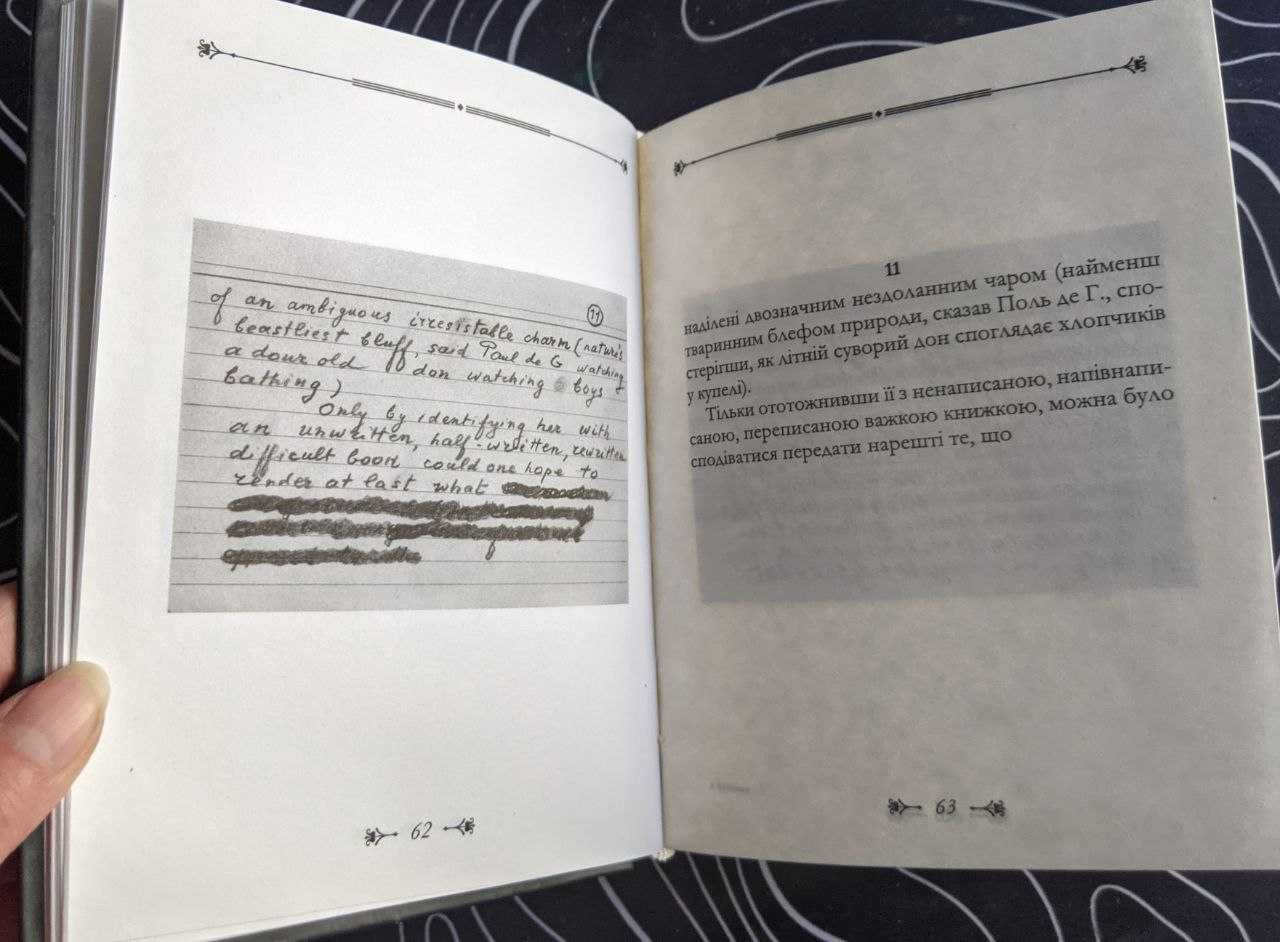 of an ambiguous irresistable charm (nature's
11
beastliest bluff, said Paul de G watching
a dour old don watching boys
bathing)
Only by identifying her with
an unwritten, half-written, rewritten
difficult book could one hope to
render at last what
62
11
наділені двозначним нездоланним чаром (найменш
тваринним блефом природи, сказав Поль де Г., спо-
стерігши, як літній суворий дон споглядає хлопчиків
у купелі).
Тільки ототожнивши її з ненаписаною, напівнапи-
саною, переписаною важкою книжкою, можна було
сподіватися передати нарешті те, що
63